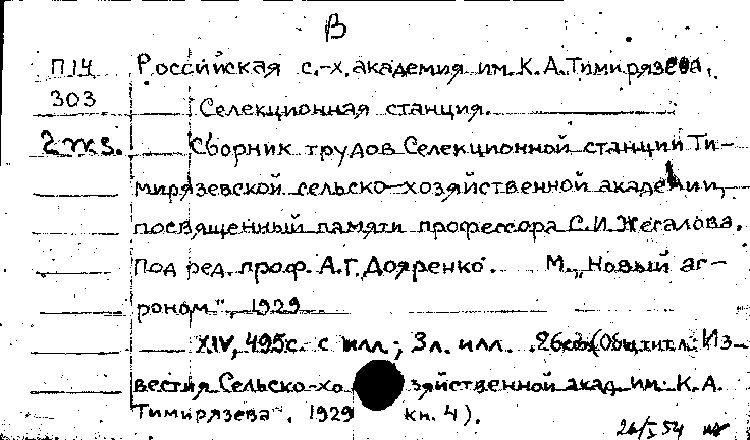 В
П14 Российская с.-х. академия им. К.А. Тимирязева.
303 Селекционная станция.
2 экз. Сборник трудов Селекционной станции Ти-
мирязевской сельско-хозяйственной академии,
посвященный памяти профессора С.И. Жегалова.
Под ред. проф. А.Г. Дояренко. М. „Новый аг-
роном", 1929
XIV, 495с. с илл.; 3л. илл. 26см (Общ. тит. л.: Из-
вестия Сельско-хозяйственной акад. им. К.А.
Тимирязева". 1929 кн. 4).
54